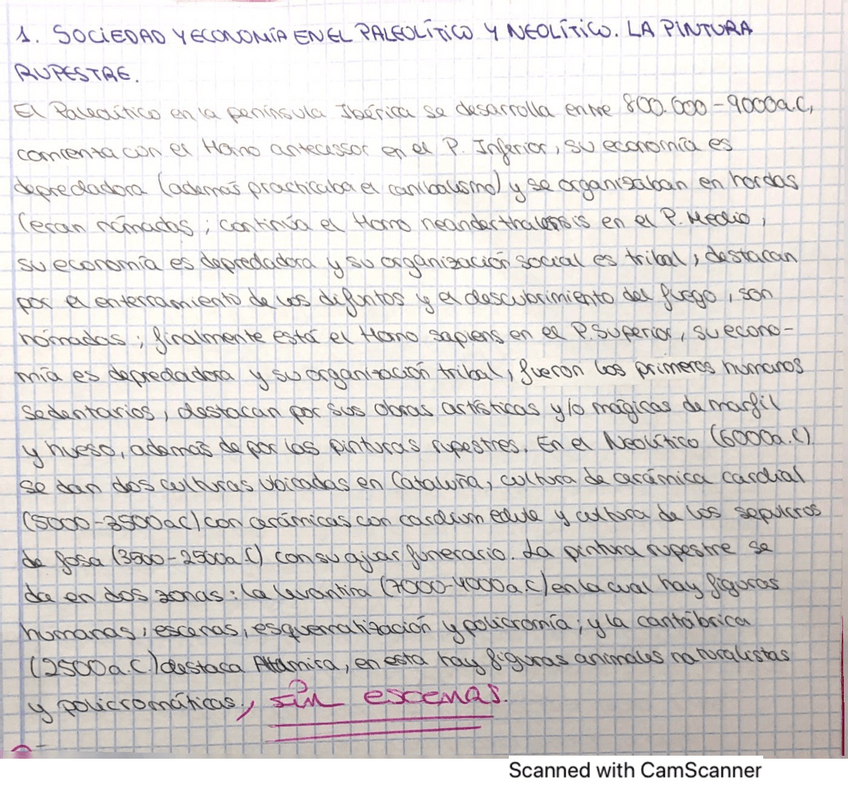 1. SOCIEDAD Y ECONOMÍA EN EL PALEOLÍTICO Y NEOLÍTICO. LA PINTURA
RUPESTRE.
El Paleolítico en la península Ibérica se desarrolla entre 800.000-9000a.C,
comienza con el Homo antecessor en el P. Inferior, su economía es
depredadora (además practicaba el canibalismo) y se organizaban en hordas
(eran nómadas; continúa el Homo neanderthalensis en el P. Medio,
su economía es depredadora y su organización social es tribal, destacan
por el enterramiento de los difuntos y el descubrimiento del fuego, son
nómadas; finalmente está el Homo sapiens en el P. Superior, su econo-
mía es depredadora y su organización tribal, fueron los primeros humanos
sedentarios, destacan por sus obras artísticas y/o mágicas de marfil
y hueso, además de por las pinturas rupestres. En el Neolítico (6000a.C)
se dan dos culturas ubicadas en Cataluña, cultura de cerámica cardial
(5000-3500aC) con cerámicas con cardium edule y cultura de los sepulcros
de fosa (3500-2500a.C) con su ajuar funerario. La pintura rupestre se
da en dos zonas: la levantina (7000-4000a.C) en la cual hay figuras
humanas, escenas, esquematización y policromía; y la cantábrica
(2500a.C) destaca Altamira, en esta hay figuras animales naturalistas
y policromáticas, sin escenas.
Scanned with CamScanner